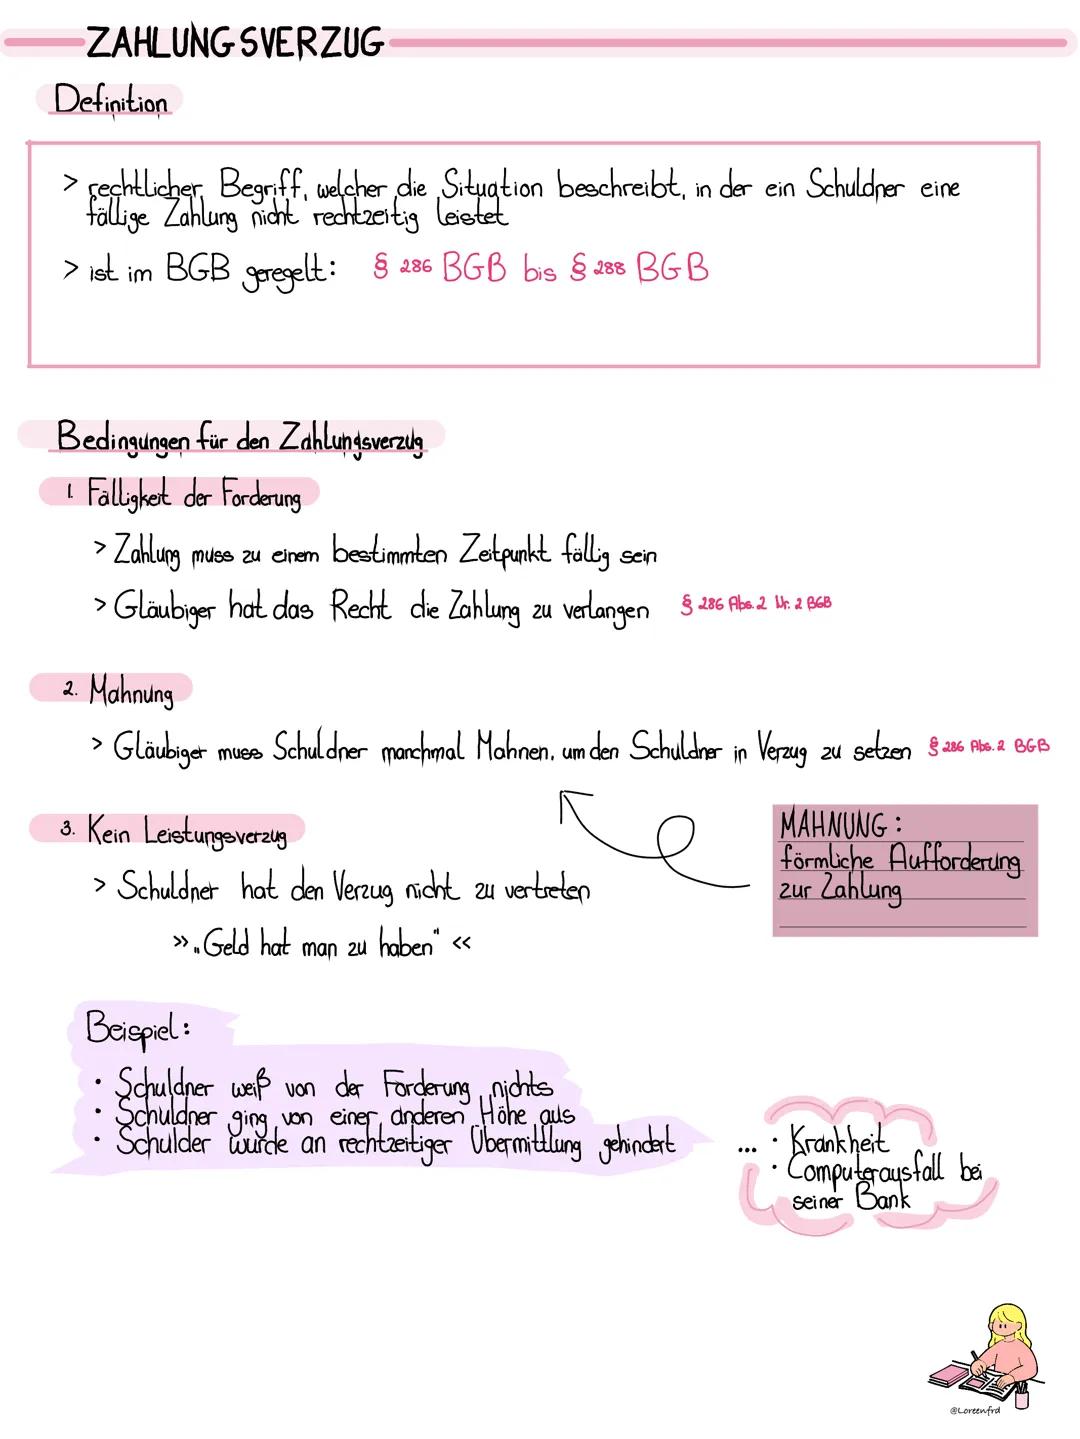 ZAHLUNGSVERZUG
Definition
> rechtlicher Begriff, welcher die Situation beschreibt, in der ein Schuldner eine
fällige Zahlung nicht rechtzeitig leistet
> ist im BGB geregelt: § 286 BGB bis § 288 BGB
Bedingungen für den Zahlungsverzug
1. Fälligkeit der Forderung
> Zahlung muss zu einem bestimmten Zeitpunkt fällig sein
> Gläubiger hat das Recht die Zahlung zu verlangen § 286 Abs. 2 Nr. 2 BGB
2. Mahnung
> Gläubiger muss Schuldner manchmal Mahnen, um den Schuldner in Verzug zu setzen § 286 Abs. 2 BGB
3. Kein Leistungsverzug
> Schuldner hat den Verzug nicht zu vertreten
>> „Geld hat man zu haben" <<
MAHNUNG:
förmliche Aufforderung
zur Zahlung
Beispiel:
• Schuldner weiß von der Forderung nichts
• Schuldner ging von einer anderen Höhe aus
• Schulder wurde an rechtzeitiger Übermittlung gehindert
... • Krankheit
• Computerausfall bei
seiner Bank
@Loreenfrd